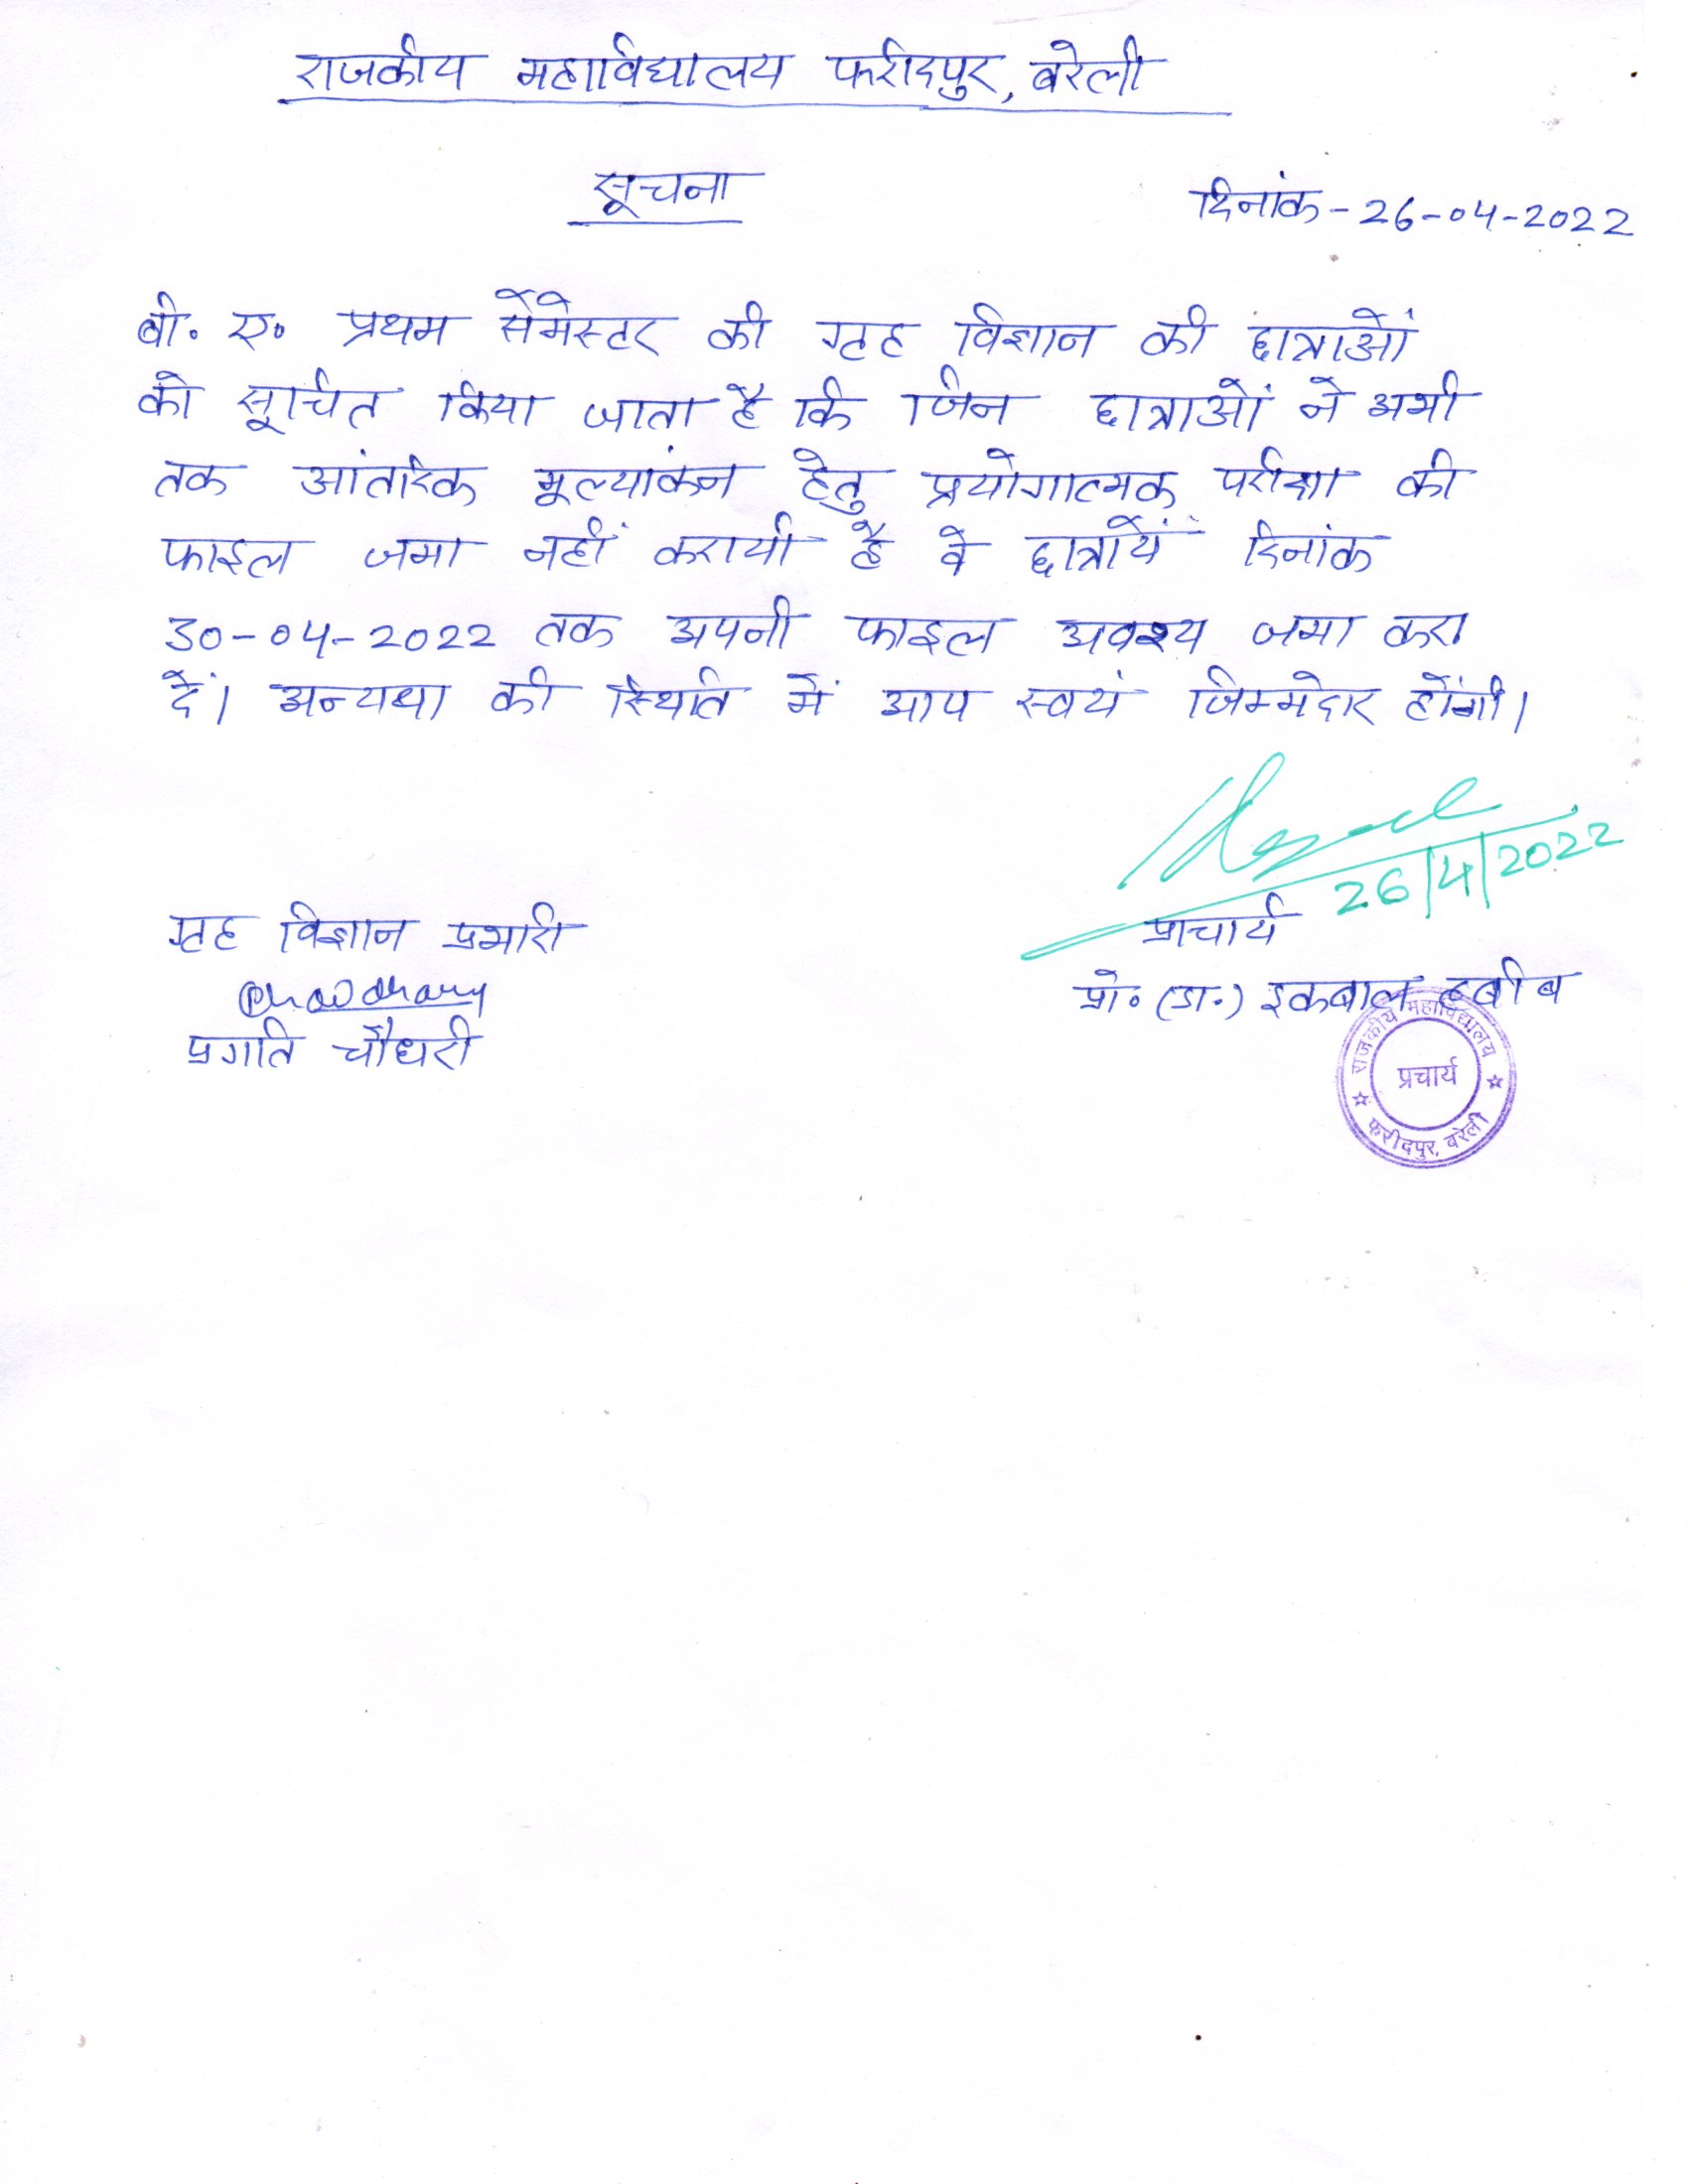 राजकीय महाविद्यालय फरीदपुर, बरेली
सूचना
दिनांक - 26-04-2022
बी. ए. प्रथम सेमेस्टर की गृह विज्ञान की छात्राओं
को सूचित किया जाता है कि जिन छात्राओं ने अभी
तक आंतरिक मूल्यांकन हेतु प्रयोगात्मक परीक्षा की
फाइल जमा नहीं करायी है वे छात्रायें दिनांक
30-04-2022 तक अपनी फाइल अवश्य जमा करा
दें। अन्यथा की स्थिति में आप स्वयं जिम्मेदार होंगी।
26/4/2022
गृह विज्ञान प्रभारी
प्राचार्य
Chaudhary
प्रो. (डा.) इकबाल हबीब
प्रगति चौधरी
राजकीय महाविद्यालय
प्रचार्य
फरीदपुर, बरेली